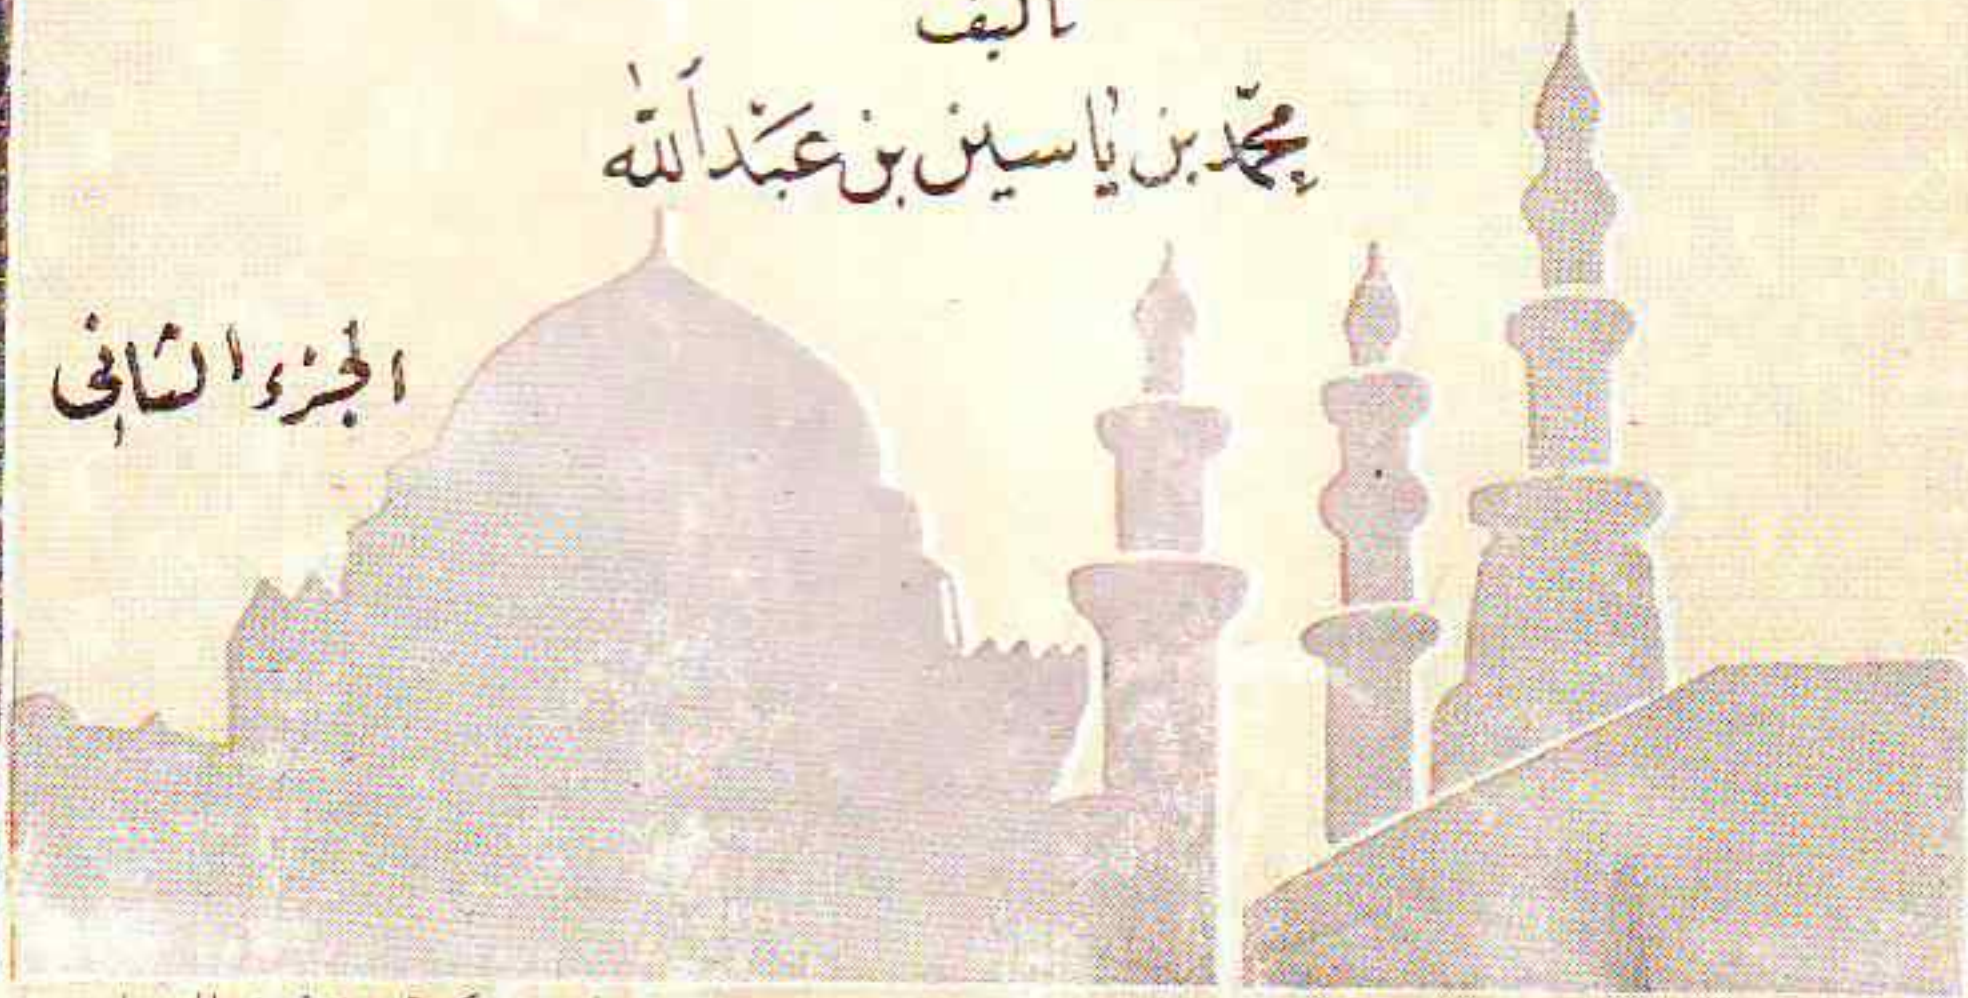 تأليف
محمّد بن ياسين بن عبد الله
الجزء الثاني